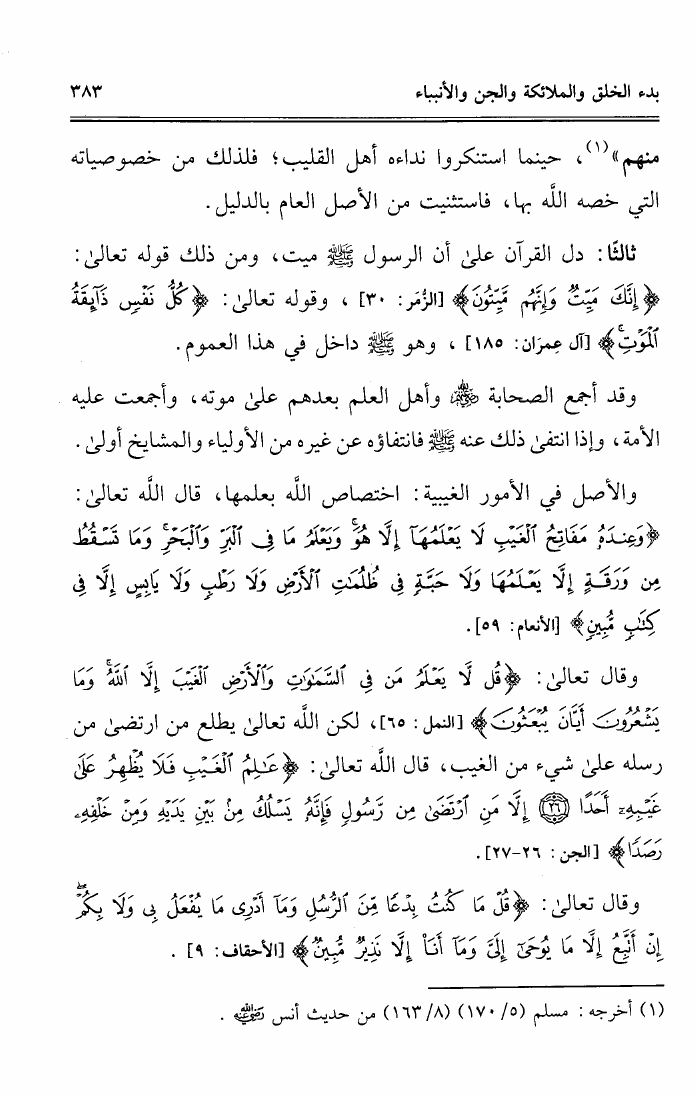 بدء الخلق والملائكة والجن والأنبياء ٣٨٣
منهم»(١)، حينما استنكروا نداءه أهل القليب؛ فلذلك من خصوصياته
التي خصه اللَّه بها، فاستثنيت من الأصل العام بالدليل.
ثالثًا: دل القرآن علىٰ أن الرسول ﷺ ميت، ومن ذلك قوله تعالىٰ:
﴿إِنَّكَ مَيِّتٌ وَإِنَّهُم مَّيِّتُونَ﴾ [الزُّمَر: ٣٠]، وقوله تعالىٰ: ﴿كُلُّ نَفْسٍ ذَآئِقَةُ
ٱلْمَوْتِۗ﴾ [آل عِمرَان: ١٨٥]، وهو ﷺ داخل في هذا العموم.
وقد أجمع الصحابة ﵃ وأهل العلم بعدهم علىٰ موته، وأجمعت عليه
الأمة، وإذا انتفىٰ ذلك عنه ﷺ فانتفاؤه عن غيره من الأولياء والمشايخ أولىٰ.
والأصل في الأمور الغيبية: اختصاص اللَّه بعلمها، قال اللَّه تعالىٰ:
﴿وَعِندَهُۥ مَفَاتِحُ ٱلْغَيْبِ لَا يَعْلَمُهَآ إِلَّا هُوَۚ وَيَعْلَمُ مَا فِى ٱلْبَرِّ وَٱلْبَحْرِۚ وَمَا تَسْقُطُ
مِن وَرَقَةٍ إِلَّا يَعْلَمُهَا وَلَا حَبَّةٍ فِى ظُلُمَٰتِ ٱلْأَرْضِ وَلَا رَطْبٍ وَلَا يَابِسٍ إِلَّا فِى
كِتَٰبٍ مُّبِينٍ﴾ [الأنعام: ٥٩].
وقال تعالىٰ: ﴿قُل لَّا يَعْلَمُ مَن فِى ٱلسَّمَٰوَٰتِ وَٱلْأَرْضِ ٱلْغَيْبَ إِلَّا ٱللَّهُۚ وَمَا
يَشْعُرُونَ أَيَّانَ يُبْعَثُونَ﴾ [النمل: ٦٥]، لكن اللَّه تعالىٰ يطلع من ارتضىٰ من
رسله علىٰ شيء من الغيب، قال اللَّه تعالىٰ: ﴿عَٰلِمُ ٱلْغَيْبِ فَلَا يُظْهِرُ عَلَىٰ
غَيْبِهِۦٓ أَحَدًا ۝٢٦ إِلَّا مَنِ ٱرْتَضَىٰ مِن رَّسُولٍ فَإِنَّهُۥ يَسْلُكُ مِنۢ بَيْنِ يَدَيْهِ وَمِنْ خَلْفِهِۦ
رَصَدًا﴾ [الجن: ٢٦-٢٧].
وقال تعالىٰ: ﴿قُلْ مَا كُنتُ بِدْعًا مِّنَ ٱلرُّسُلِ وَمَآ أَدْرِى مَا يُفْعَلُ بِى وَلَا بِكُمْۖ
إِنْ أَتَّبِعُ إِلَّا مَا يُوحَىٰٓ إِلَىَّ وَمَآ أَنَا۠ إِلَّا نَذِيرٌ مُّبِينٌ﴾ [الأحقاف: ٩].
(١) أخرجه: مسلم (٥/ ١٧٠) (٨/ ١٦٣) من حديث أنس ﵁.